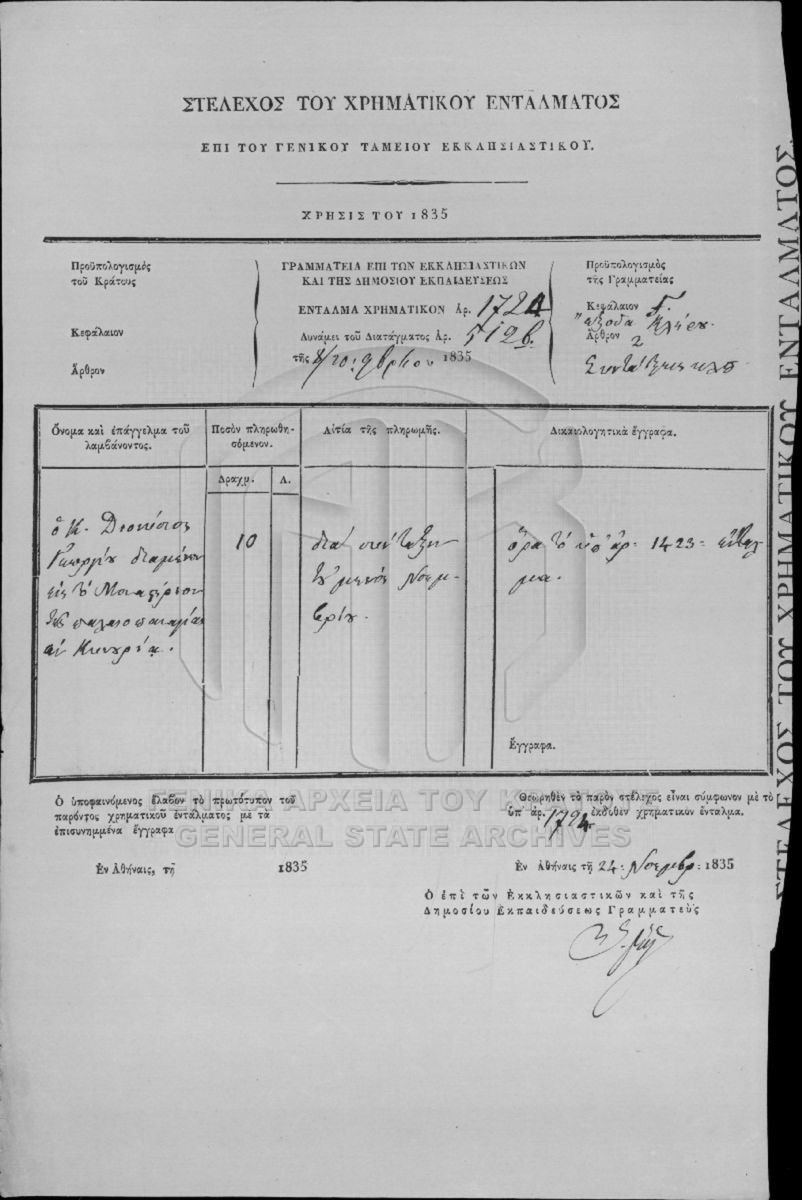 ΣΤΕΛΕΧΟΣ ΤΟΥ ΧΡΗΜΑΤΙΚΟΥ ΕΝΤΑΛΜΑΤΟΣ
ΕΠΙ ΤΟΥ ΓΕΝΙΚΟΥ ΤΑΜΕΙΟΥ ΕΚΚΛΗΣΙΑΣΤΙΚΟΥ.
ΧΡΗΣΙΣ ΤΟΥ 1835
Προϋπολογισμὸς
τοῦ Κράτους
Κεφάλαιον
Ἄρθρον
ΓΡΑΜΜΑΤΕΙΑ ΕΠΙ ΤΩΝ ΕΚΚΛΗΣΙΑΣΤΙΚΩΝ
ΚΑΙ ΤΗΣ ΔΗΜΟΣΙΟΥ ΕΚΠΑΙΔΕΥΣΕΩΣ
ΕΝΤΑΛΜΑ ΧΡΗΜΑΤΙΚΟΝ Ἀρ. 1724
Δυνάμει τοῦ Διατάγματος Ἀρ.
τῆς 8/20 9βρίου 1835
Προϋπολογισμὸς
τῆς Γραμματείας
Κεφάλαιον Γ.
ἔξοδα Κλήρου
Ἄρθρον 2
Συντάξεις
Ὄνομα καὶ ἐπάγγελμα τοῦ
λαμβάνοντος.
Ποσὸν πληρωθη-
σόμενον.
Δραχμ. Λ.
Αἰτία τῆς πληρωμῆς.
Δικαιολογητικὰ ἔγγραφα.
ὁ Κ. Διονύσιος
Γεωργίου διαμένων
εἰς τὸ Μοναστήριον
τῆς παλαιοπαναγίας
ἐν Κυνουρίᾳ.
10
διὰ σύνταξιν
τοῦ μηνὸς Νοεμ-
βρίου.
ὅρα τὸ ὑπ' ἀρ. 1423 ἔνταλ
μα.
Ἔγγραφα.
Ὁ ὑποφαινόμενος ἔλαβον τὸ πρωτότυπον τοῦ
παρόντος χρηματικοῦ ἐντάλματος μὲ τὰ
ἐπισυνημμένα ἔγγραφα
Ἐν Ἀθήναις, τῇ 1835
Θεωρηθὲν τὸ παρὸν στέλεχος εἶναι σύμφωνον μὲ τὸ
ὑπ' ἀρ. 1724 ἐκδοθὲν χρηματικὸν ἔνταλμα.
Ἐν Ἀθήναις τῇ 24 Νοεμβρ: 1835
Ὁ ἐπὶ τῶν Ἐκκλησιαστικῶν καὶ τῆς
Δημοσίου Ἐκπαιδεύσεως Γραμματεὺς
ΣΤΕΛΕΧΟΣ ΤΟΥ ΧΡΗΜΑΤΙΚΟΥ ΕΝΤΑΛΜΑΤΟΣ.
ΓΕΝΙΚΑ ΑΡΧΕΙΑ ΤΟΥ ΚΡΑΤΟΥΣ
GENERAL STATE ARCHIVES